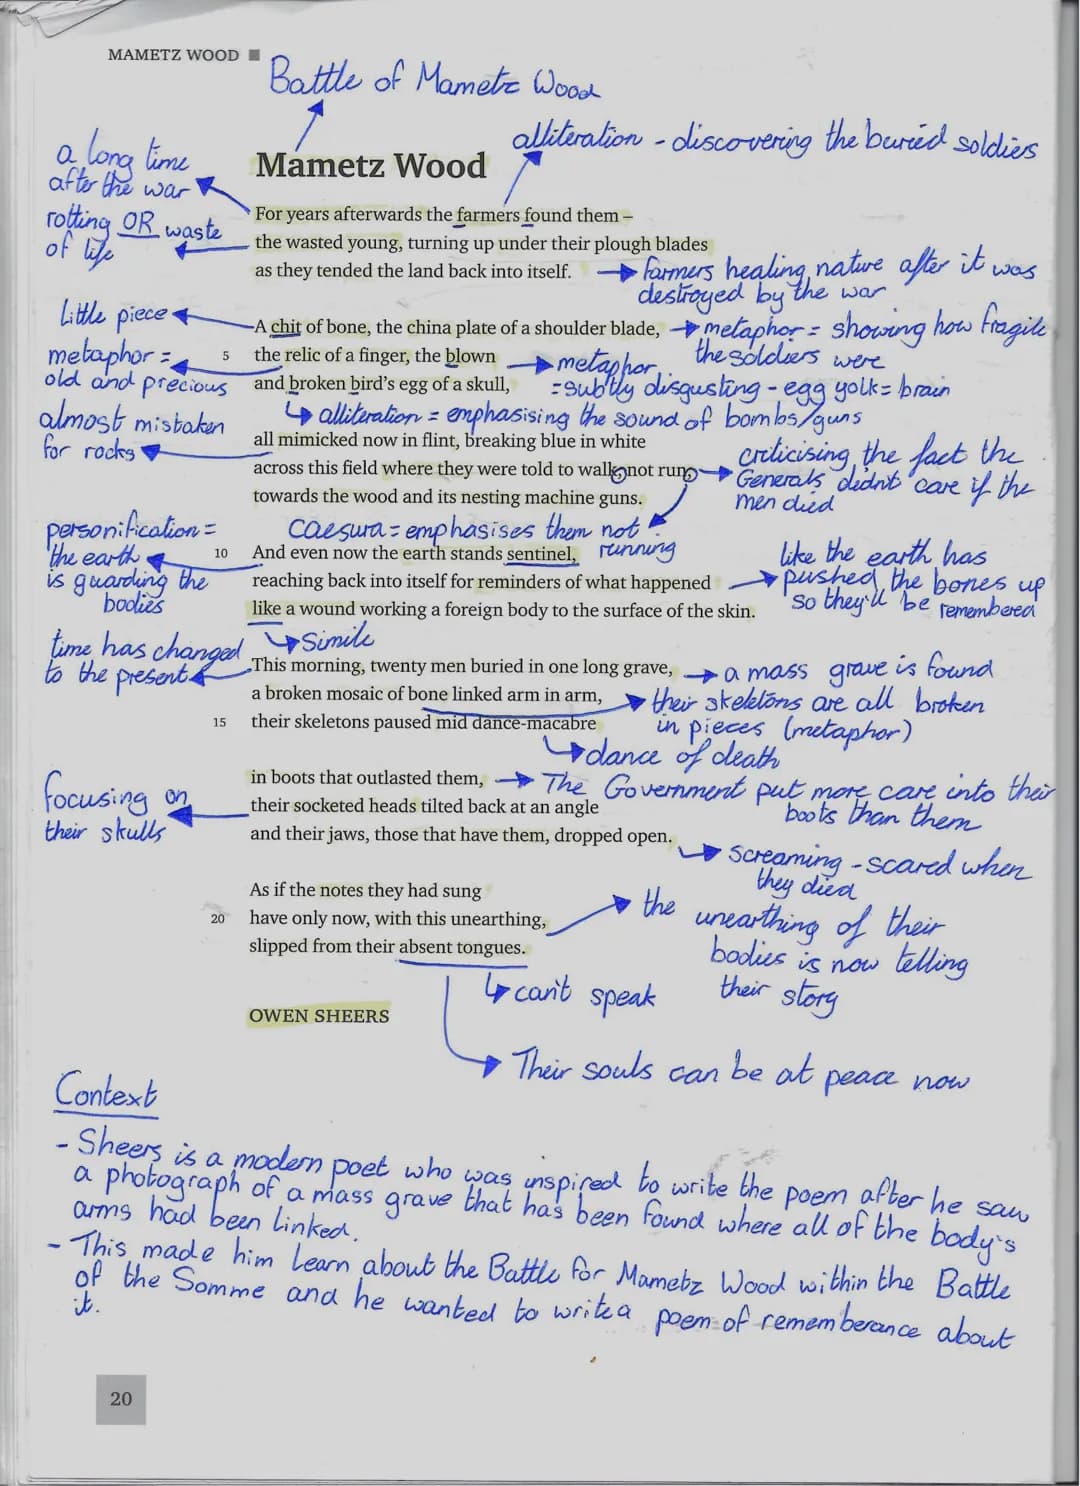 MAMETZ WOOD
Battle of Mametz Wood
alliteration - discovering the buried soldiers
a long time
after the war
Mametz Wood
rotting OR waste
of life
For years afterwards the farmers found them –
the wasted young, turning up under their plough blades
as they tended the land back into itself.
farmers healing nature after it was
destroyed by the war
little piece
A chit of bone, the china plate of a shoulder blade,
metaphor = showing how fragile
the soldiers were
metaphor =
old and precious
5 the relic of a finger, the blown
metaphor
= subtly disgusting - egg yolk = brain
and broken bird's egg of a skull,
alliteration = emphasising the sound of bombs/guns
almost mistaken
for rocks
all mimicked now in flint, breaking blue in white
across this field where they were told to walk, not run,
towards the wood and its nesting machine guns.
criticising the fact the
Generals didn't care if the
men died
caesura = emphasises them not
running
personification =
the earth
is guarding the
bodies
10 And even now the earth stands sentinel,
reaching back into itself for reminders of what happened
like a wound working a foreign body to the surface of the skin.
like the earth has
pushed the bones up
so they'll be remembered
Simile
time has changed
to the present
This morning, twenty men buried in one long grave,
a mass grave is found
a broken mosaic of bone linked arm in arm,
their skeletons are all broken
in pieces (metaphor)
15 their skeletons paused mid dance-macabre
dance of death
in boots that outlasted them,
The Government put more care into their
boots than them
focusing on
their skulls
their socketed heads tilted back at an angle
and their jaws, those that have them, dropped open.
screaming - scared when
they died
As if the notes they had sung
20 have only now, with this unearthing,
slipped from their absent tongues.
the unearthing of their
bodies is now telling
their story
can't speak
OWEN SHEERS
Their souls can be at peace now
Context
- Sheers is a modern poet who was inspired to write the poem after he saw
a photograph of a mass grave that has been found where all of the body's
arms had been linked.
- This made him learn about the Battle for Mametz Wood within the Battle
of the Somme and he wanted to write a poem of rememberance about
it.
20